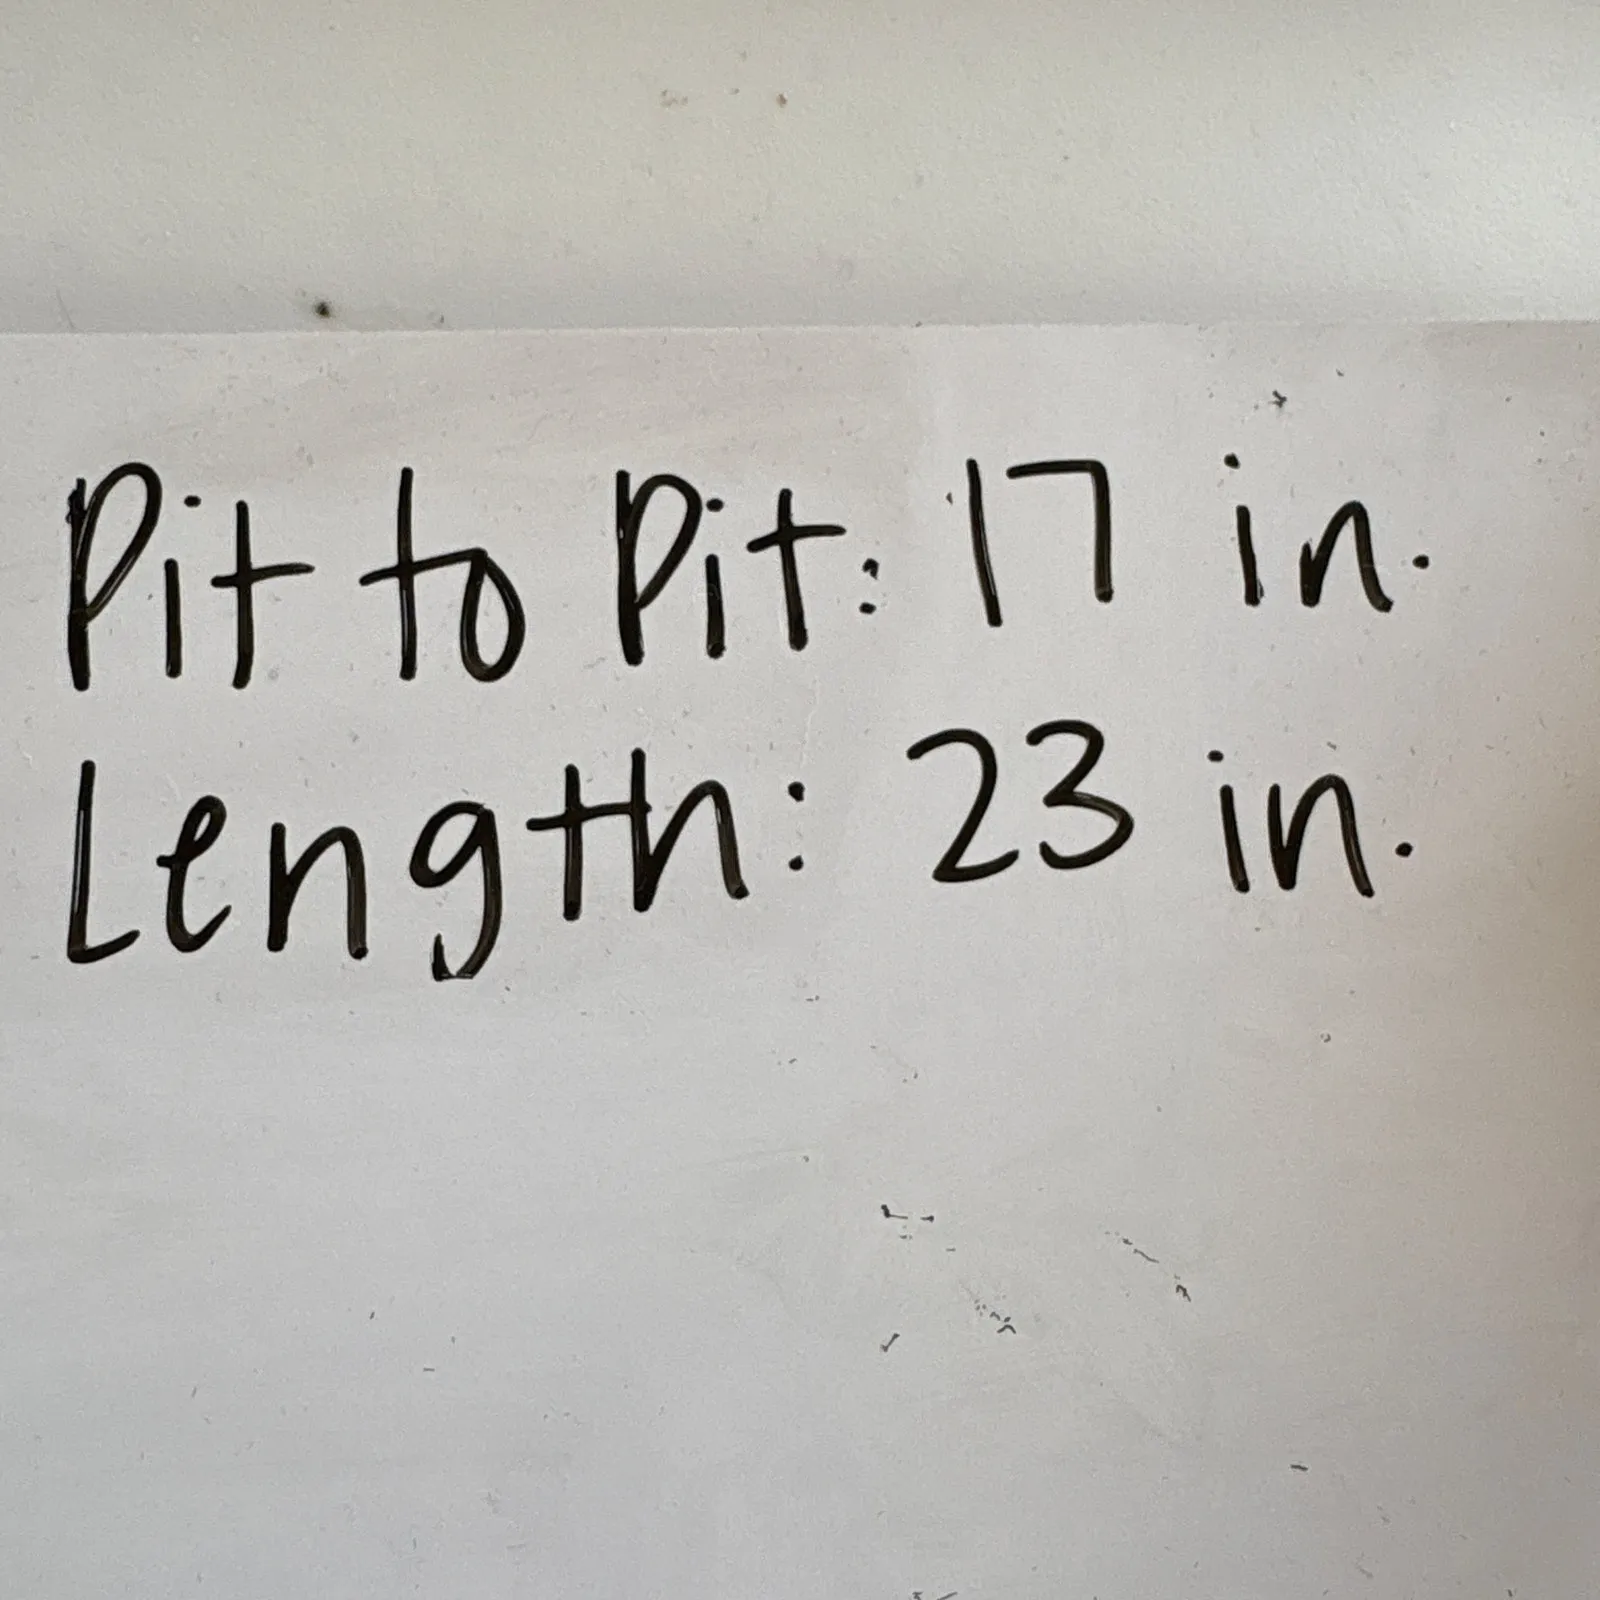 Pit to Pit: 17 in.
Length: 23 in.